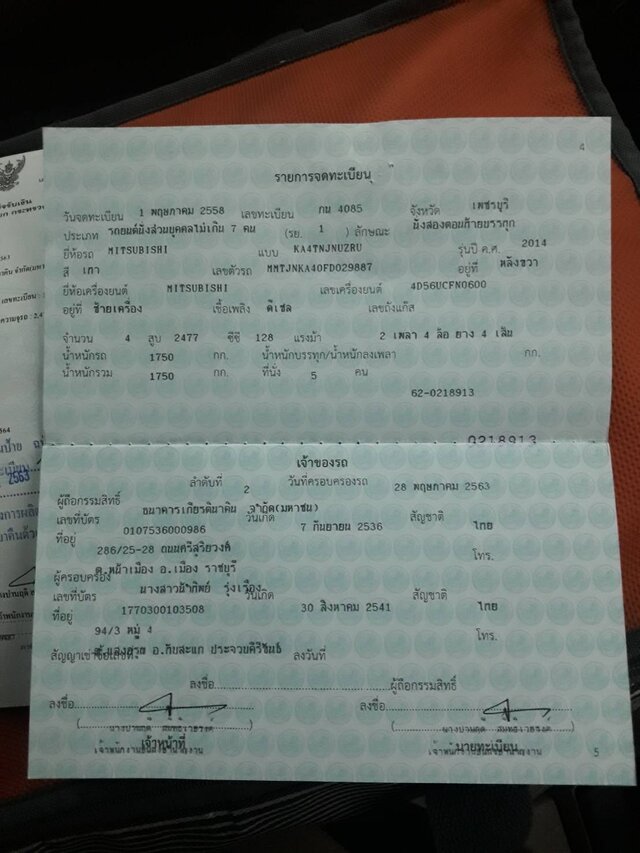 4
รายการจดทะเบียน
วันจดทะเบียน 1 พฤษภาคม 2558 เลขทะเบียน กน 4085 จังหวัด เพชรบุรี
ประเภท รถยนต์นั่งส่วนบุคคลไม่เกิน 7 คน (รย. 1 ) ลักษณะ นั่งสองตอนท้ายบรรทุก
ยี่ห้อรถ MITSUBISHI แบบ KA4TNJNUZRU รุ่นปี ค.ศ. 2014
สี เทา เลขตัวรถ MMTJNKA40FD029887 อยู่ที่ หลังขวา
ยี่ห้อเครื่องยนต์ MITSUBISHI เลขเครื่องยนต์ 4D56UCFN0600
อยู่ที่ ซ้ายเครื่อง เชื้อเพลิง ดีเซล เลขถังแก๊ส
จำนวน 4 สูบ 2477 ซีซี 128 แรงม้า 2 เพลา 4 ล้อ ยาง 4 เส้น
น้ำหนักรถ 1750 กก. น้ำหนักบรรทุก/น้ำหนักลงเพลา กก.
น้ำหนักรวม 1750 กก. ที่นั่ง 5 คน
62-0218913
0218913
เจ้าของรถ
ลำดับที่ 2 วันที่ครอบครองรถ 28 พฤษภาคม 2563
ผู้ถือกรรมสิทธิ์ ธนาคารเกียรตินาคิน จำกัด(มหาชน)
เลขที่บัตร 0107536000986 วันเกิด 7 กันยายน 2536 สัญชาติ ไทย
ที่อยู่ 286/25-28 ถนนศรีสุริยวงศ์ โทร.
ต.หน้าเมือง อ.เมือง ราชบุรี
ผู้ครอบครอง นางสาวน้ำทิพย์ รุ่งเรือง
เลขที่บัตร 1770300103508 วันเกิด 30 สิงหาคม 2541 สัญชาติ ไทย
ที่อยู่ 94/3 หมู่ 4 โทร.
สัญญาเช่าซื้อเลขที่ อ.ทับสะแก ประจวบคีรีขันธ์ ลงวันที่
ลงชื่อ ผู้ถือกรรมสิทธิ์
ลงชื่อ ลงชื่อ
เจ้าหน้าที่ นายทะเบียน
5